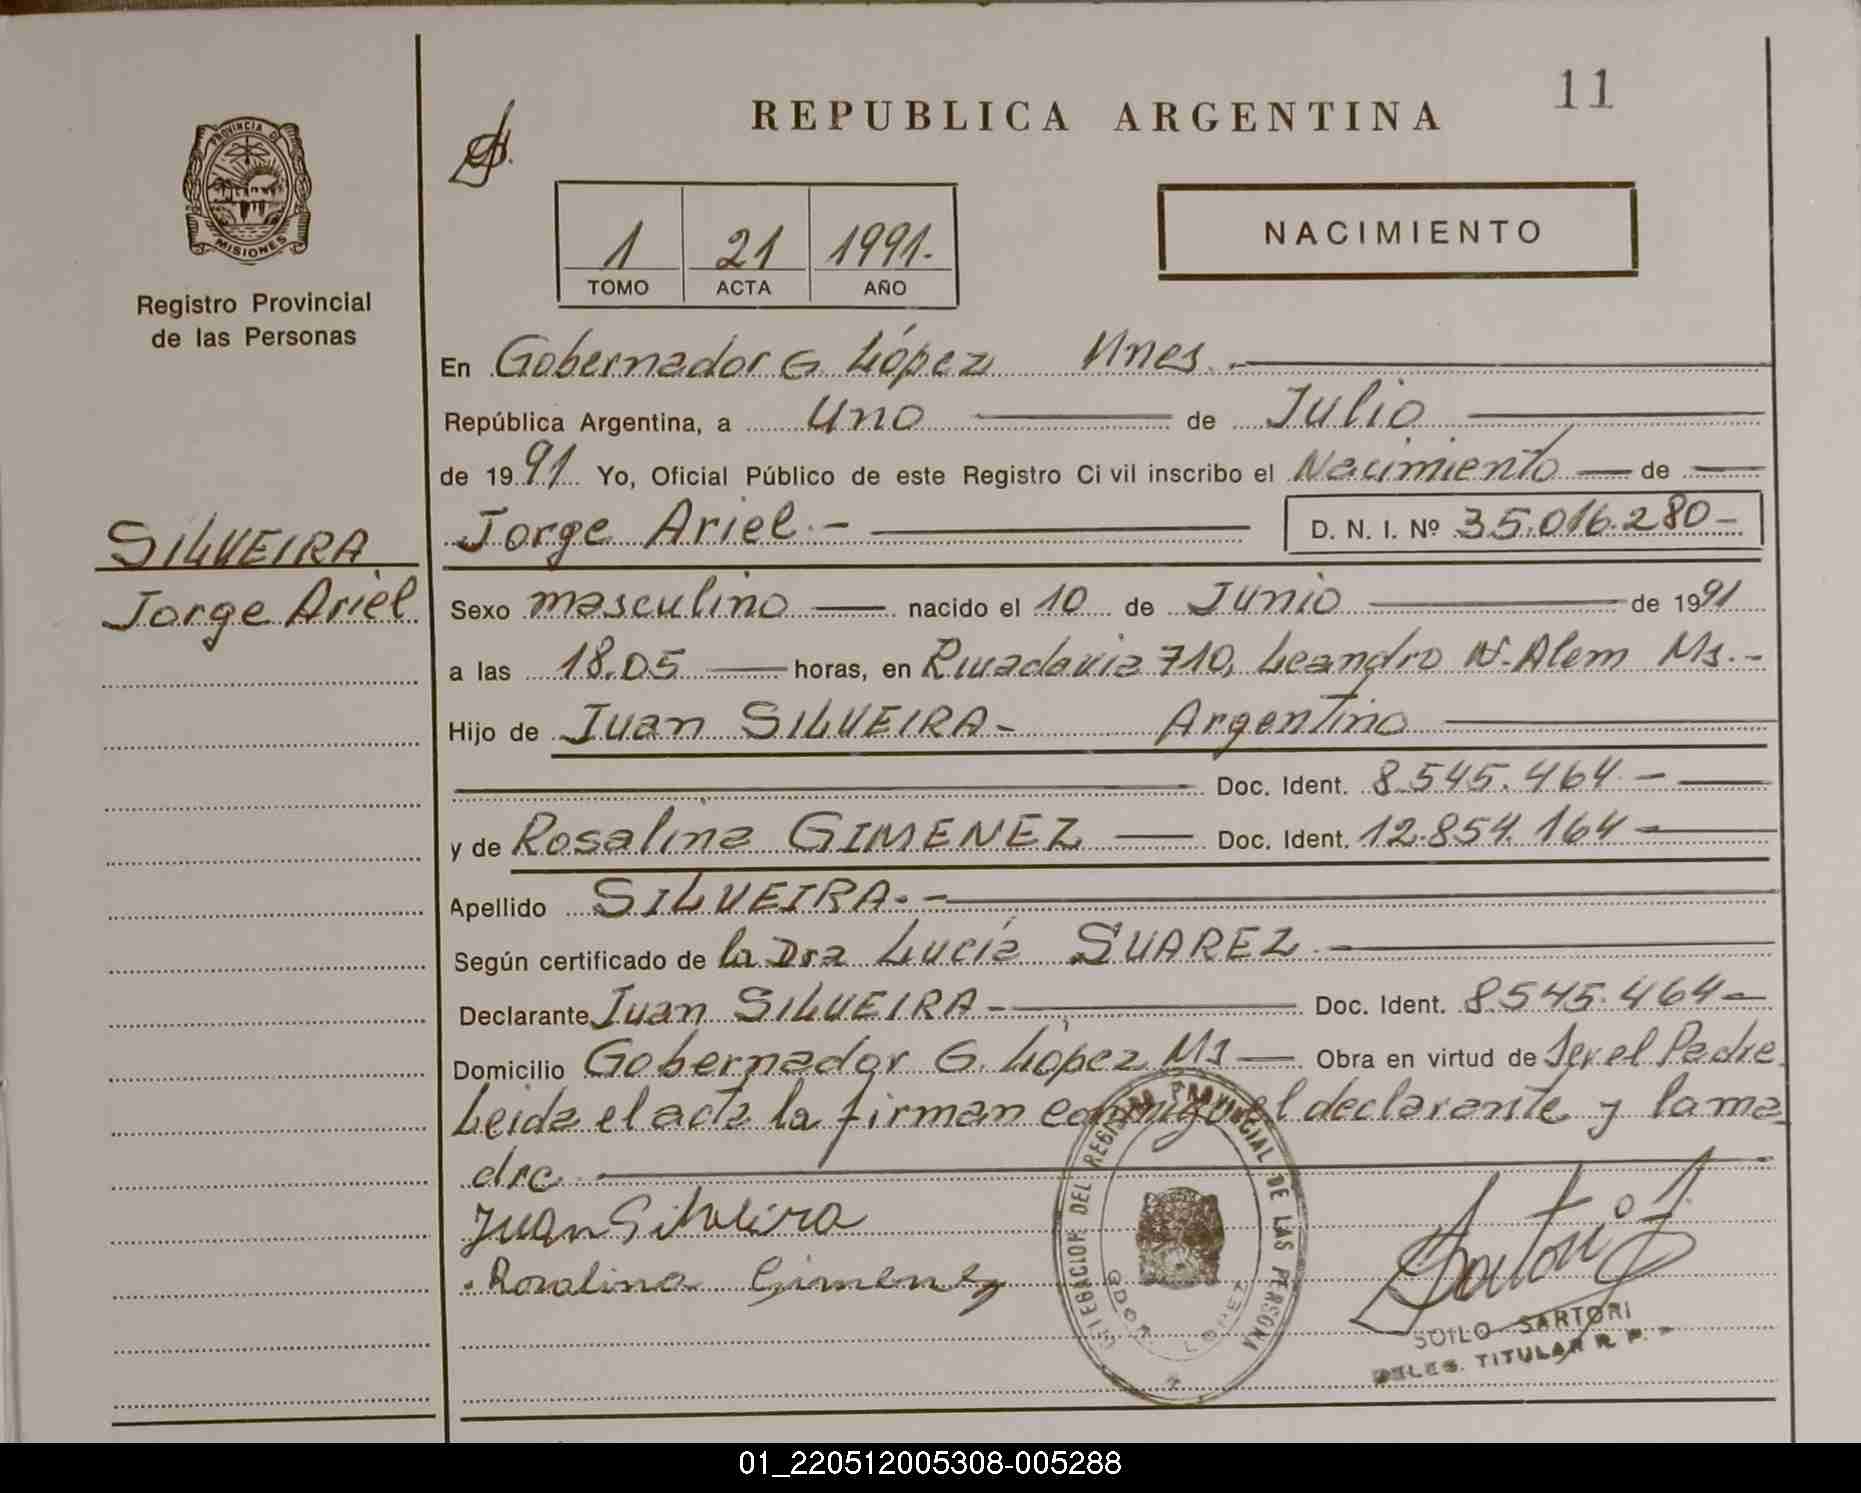 11
REPUBLICA ARGENTINA
PROVINCIA DE
MISIONES
Registro Provincial
de las Personas
1 21 1991.-
TOMO ACTA AÑO
NACIMIENTO
En Gobernador G. López Mnes.-
República Argentina, a Uno de Julio
de 1991. Yo, Oficial Público de este Registro Civil inscribo el Nacimiento de
SILVEIRA
Jorge Ariel
Jorge Ariel.- D. N. I. Nº 35.016.280-
Sexo masculino nacido el 10 de Junio de 1991
a las 18.05 horas, en Rivadavia 710, Leandro N. Alem Ms.-
Hijo de Juan SILVEIRA- Argentino
Doc. Ident. 8.545.464.-
y de Rosalina GIMENEZ Doc. Ident. 12.854.164-
Apellido SILVEIRA.-
Según certificado de la Dra Lucía SUAREZ.
Declarante Juan SILVEIRA- Doc. Ident. 8.545.464-
Domicilio Gobernador G. López Ms Obra en virtud de Ser el Padre
Leida el acta la firman conmigo el declarante y la ma
dre.
Juan Silveira
Rosalina Gimenez
DELEGACION DEL REGISTRO PROVINCIAL DE LAS PERSONAS
GDOR. LOPEZ
Sartori
SOILO SARTORI
DELEG. TITULAR R. P.
01_220512005308-005288